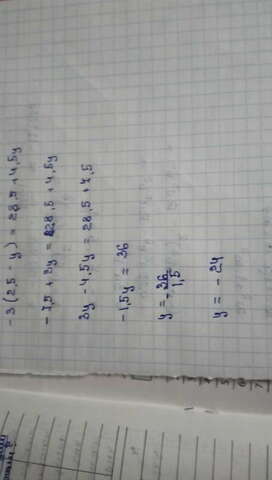 -3(2,5 - y) = 28,5 + 4,5y
-7,5 + 3y = 28,5 + 4,5y
3y - 4,5y = 28,5 + 7,5
-1,5y = 36
y = - 36/1,5
y = - 24